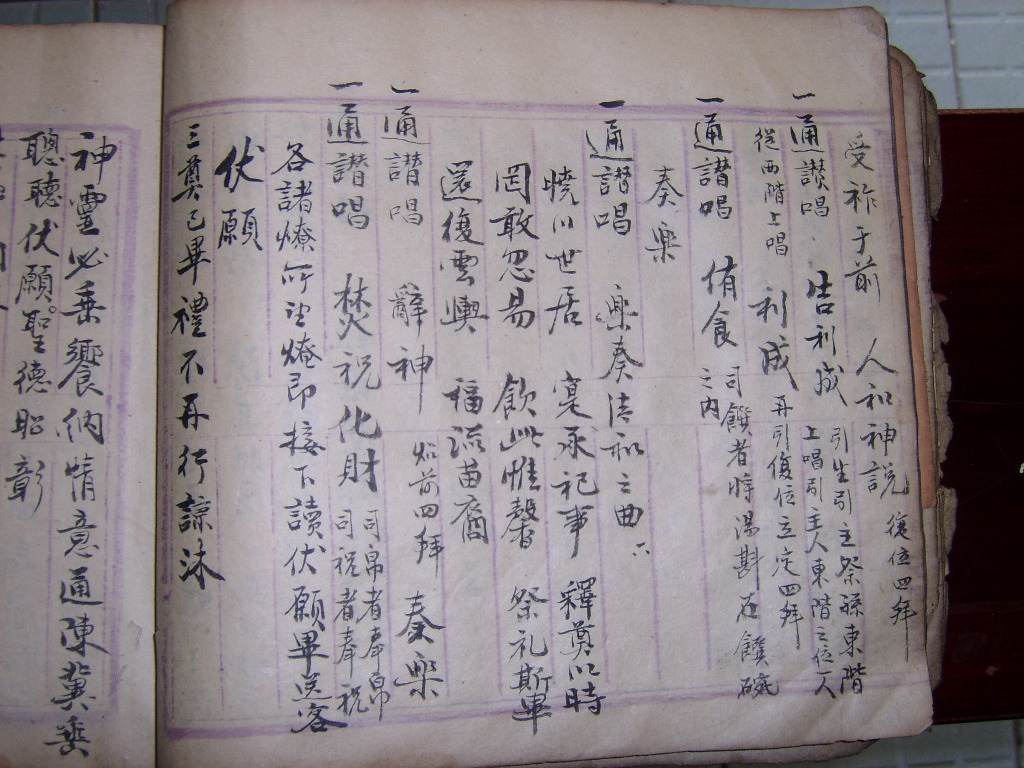 受祚于前 人和神説 復位四拜
一通讃唱 告利成 引生引主祭孫東階
上唱引主人東階之位
從西階上唱 利成 再引復位立定四拜
一通讃唱 侑食 司饌者將湯斟在饌碗
之内
奏樂
一通讃唱 樂奏清和之曲
世居 寔承祀事 釋奠以時
罔敢忽易 飲此惟馨 祭礼斯畢
還復雲輿 福流苗裔
一通讃唱 辭神 前四拜 奏樂
一通讃唱 焚祝化財 司帛者奉帛
司祝者奉祝
各諸燎所望燎即接下讀伏願畢送客
伏願
三奠已畢禮不再行諒沐
神靈必垂饗納情意通陳冀垂
聰聽伏願聖德昭彰